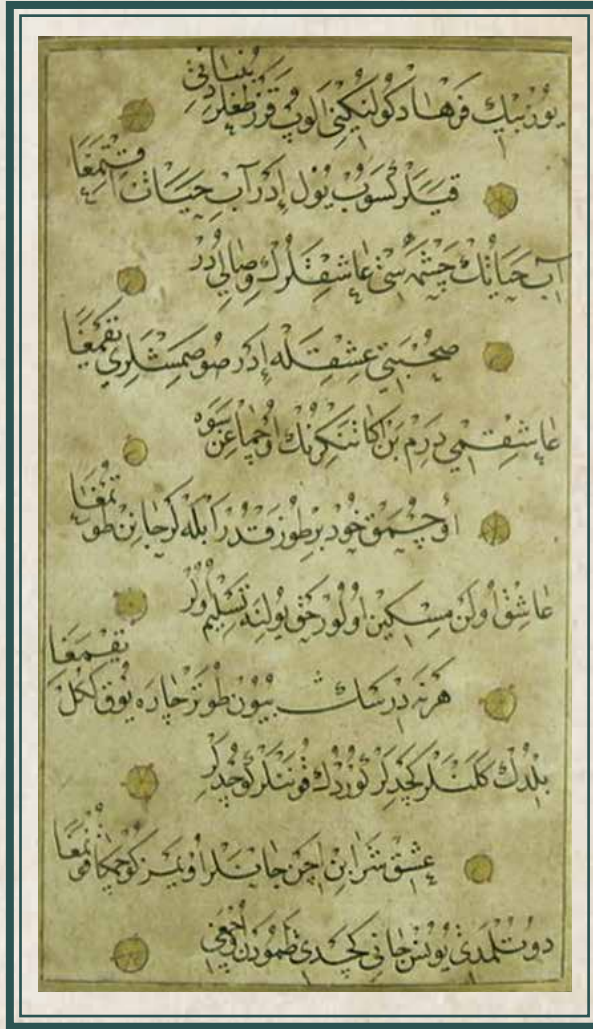 يوز بيك فرهاد كولنكيني الوب قزر طغلر بنياني
قيالر كسوب يول ادر آب حيات اقتمغا
آب حياتك چشمه سى عاشقلرك وصالي در
صحبتي عشقله ادر صوصمشلري يقمغا
عاشقمي درم بن اكا تنكرنك اوچماغن سوه
اوچمق خود بر طوزقدر ابله كر جانن طوتمغا
عاشق اولن مسكين اولور حق يولنه تسليم اولر
هر نه درسك بيون طوتر چاره يوق ككل يقمغا
بلدك كلنلر كچدلر كوردك قوننلر كوچدلر
عشق شرابن اچن جانلر اويمز كوچمكا قونمغا
دوتلمدى يونس جاني كچدى طمودن